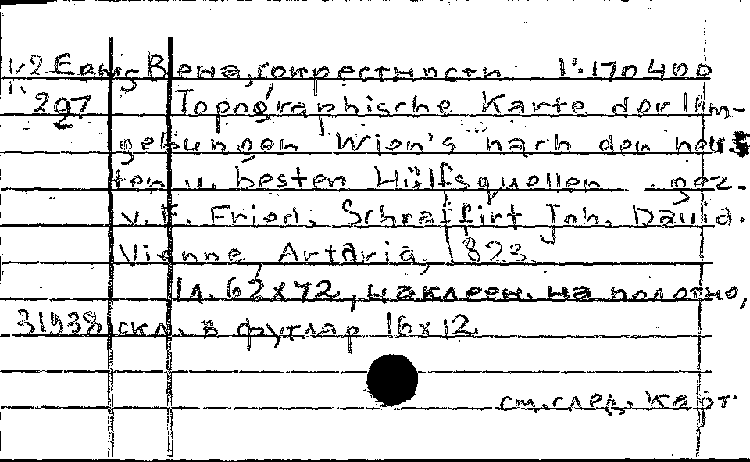 К2 Евгs Вена, сокрестности 1:170400
297 Topographische Karte der Um-
gebungen Wien's nach den neus-
ten u. besten Hülfsquellen gez.
v. F. Fried. Schraffirt Joh. David.
Vienne, Artaria, 1823.
1 л. 62x72, наклеен. на полотно,
31938 скл. в футляр 16x12
см. след. карт.